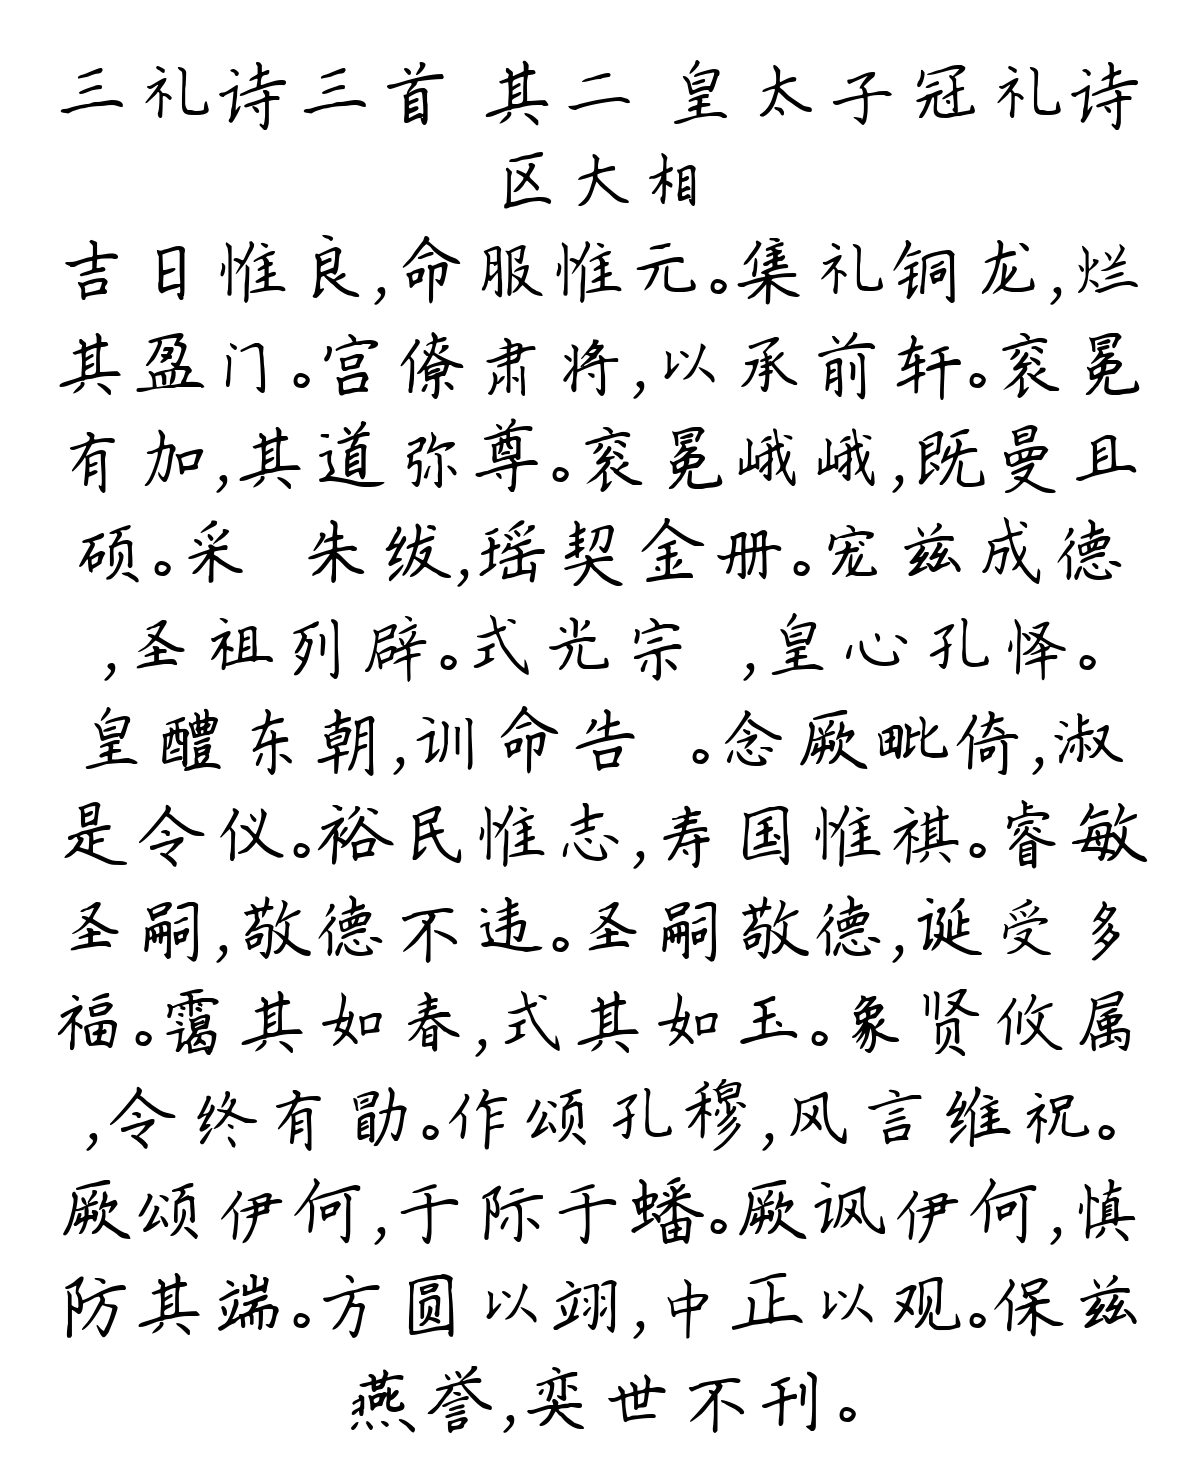 三礼诗三首 其二 皇太子冠礼诗
区大相
吉日惟良,命服惟元。集礼铜龙,烂
其盈门。宫僚肃将,以承前轩。衮冕
有加,其道弥尊。衮冕峨峨,既曼且
硕。采 朱绂,瑶契金册。宠兹成德
,圣祖列辟。式光宗 ,皇心孔怿。
皇醴东朝,训命告 。念厥毗倚,淑
是令仪。裕民惟志,寿国惟祺。睿敏
圣嗣,敬德不违。圣嗣敬德,诞受多
福。霭其如春,式其如玉。象贤攸属
,令终有勖。作颂孔穆,风言维祝。
厥颂伊何,于际于蟠。厥讽伊何,慎
防其端。方圆以翊,中正以观。保兹
燕誉,奕世不刊。